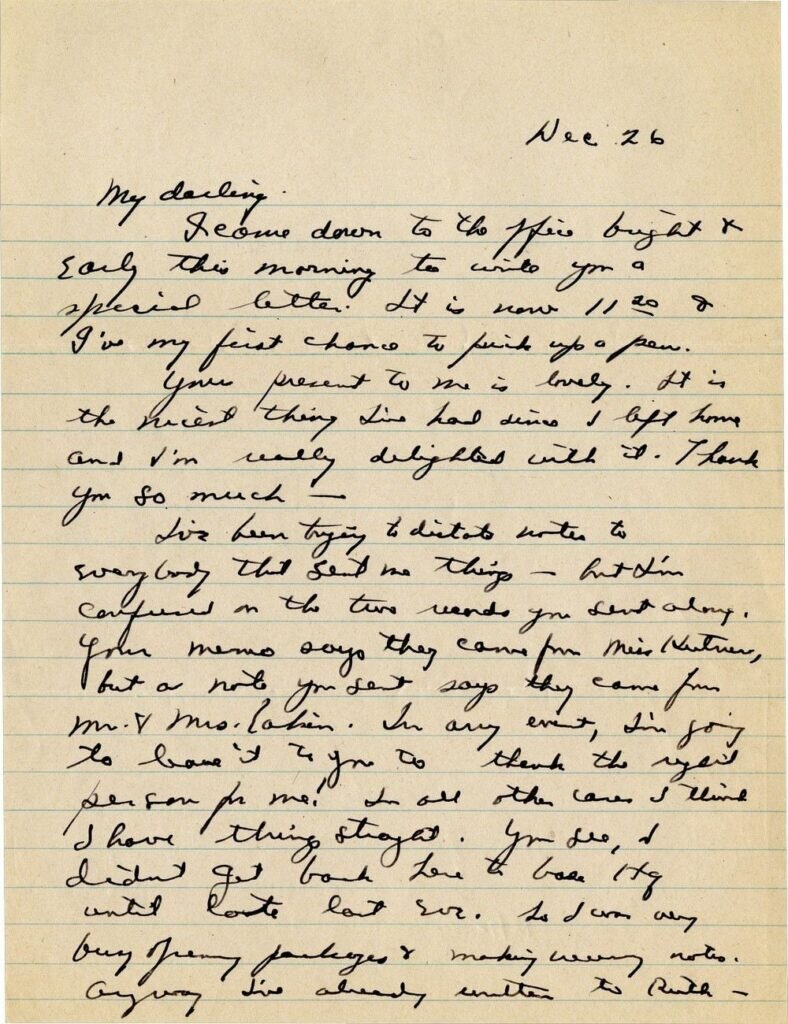 Dec 26
My darling.
I came down to the office bright &
early this morning to write you a
special letter. It is now 11 30 &
I've my first chance to pick up a pen.
Your present to me is lovely. It is
the nicest thing I've had since I left home
and I'm really delighted with it. Thank
you so much —
I've been trying to dictate notes to
everybody that sent me things — but I'm
confused on the two records you sent along.
Your memo says they came from Miss
but a note you sent says they came from
Mr. & Mrs. In any event, I'm going
to leave it to you to thank the right
person for me! In all other cases I think
I have things straight. You see, I
didn't get back here to base Hq
until late last eve. So I was very
busy opening packages & making notes.
Anyway I've already written to Ruth —